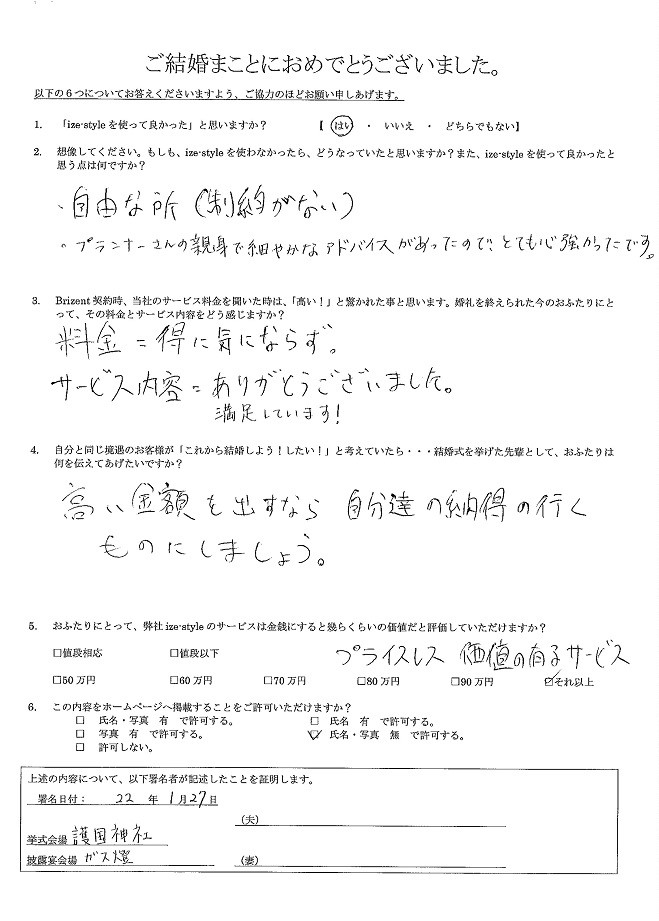 ご結婚まことにおめでとうございました。
以下の6つについてお答えくださいますよう、ご協力のほどお願い申しあげます。
1. 「ize-styleを使って良かった」と思いますか？ 【 はい ・ いいえ ・ どちらでもない】
2. 想像してください。もしも、ize-styleを使わなかったら、どうなっていたと思いますか？また、ize-styleを使って良かったと
思う点は何ですか？
・自由な所（制約がない）
・プランナーさんの親身で細やかなアドバイスがあったので、とても心強かったです。
3. Brizent契約時、当社のサービス料金を聞いた時は、「高い！」と驚かれた事と思います。婚礼を終えられた今のおふたりにと
って、その料金とサービス内容をどう感じますか？
料金＝得に気にならず。
サービス内容＝ありがとうございました。
満足しています！
4. 自分と同じ境遇のお客様が「これから結婚しよう！したい！」と考えていたら・・・結婚式を挙げた先輩として、おふたりは
何を伝えてあげたいですか？
高い金額を出すなら 自分達の納得の行く
ものにしましょう。
5. おふたりにとって、弊社ize-styleのサービスは金銭にすると幾らくらいの価値だと評価していただけますか？
□値段相応 □値段以下 プライスレス 価値の有るサービス
□50万円 □60万円 □70万円 □80万円 □90万円 ☑それ以上
6. この内容をホームページへ掲載することをご許可いただけますか？
□ 氏名・写真 有 で許可する。 □ 氏名 有 で許可する。
□ 写真 有 で許可する。 ☑ 氏名・写真 無 で許可する。
□ 許可しない。
上述の内容について、以下署名者が記述したことを証明します。
署名日付： 22 年 1月27日
（夫）
挙式会場 護国神社
披露宴会場 ガス燈 （妻）